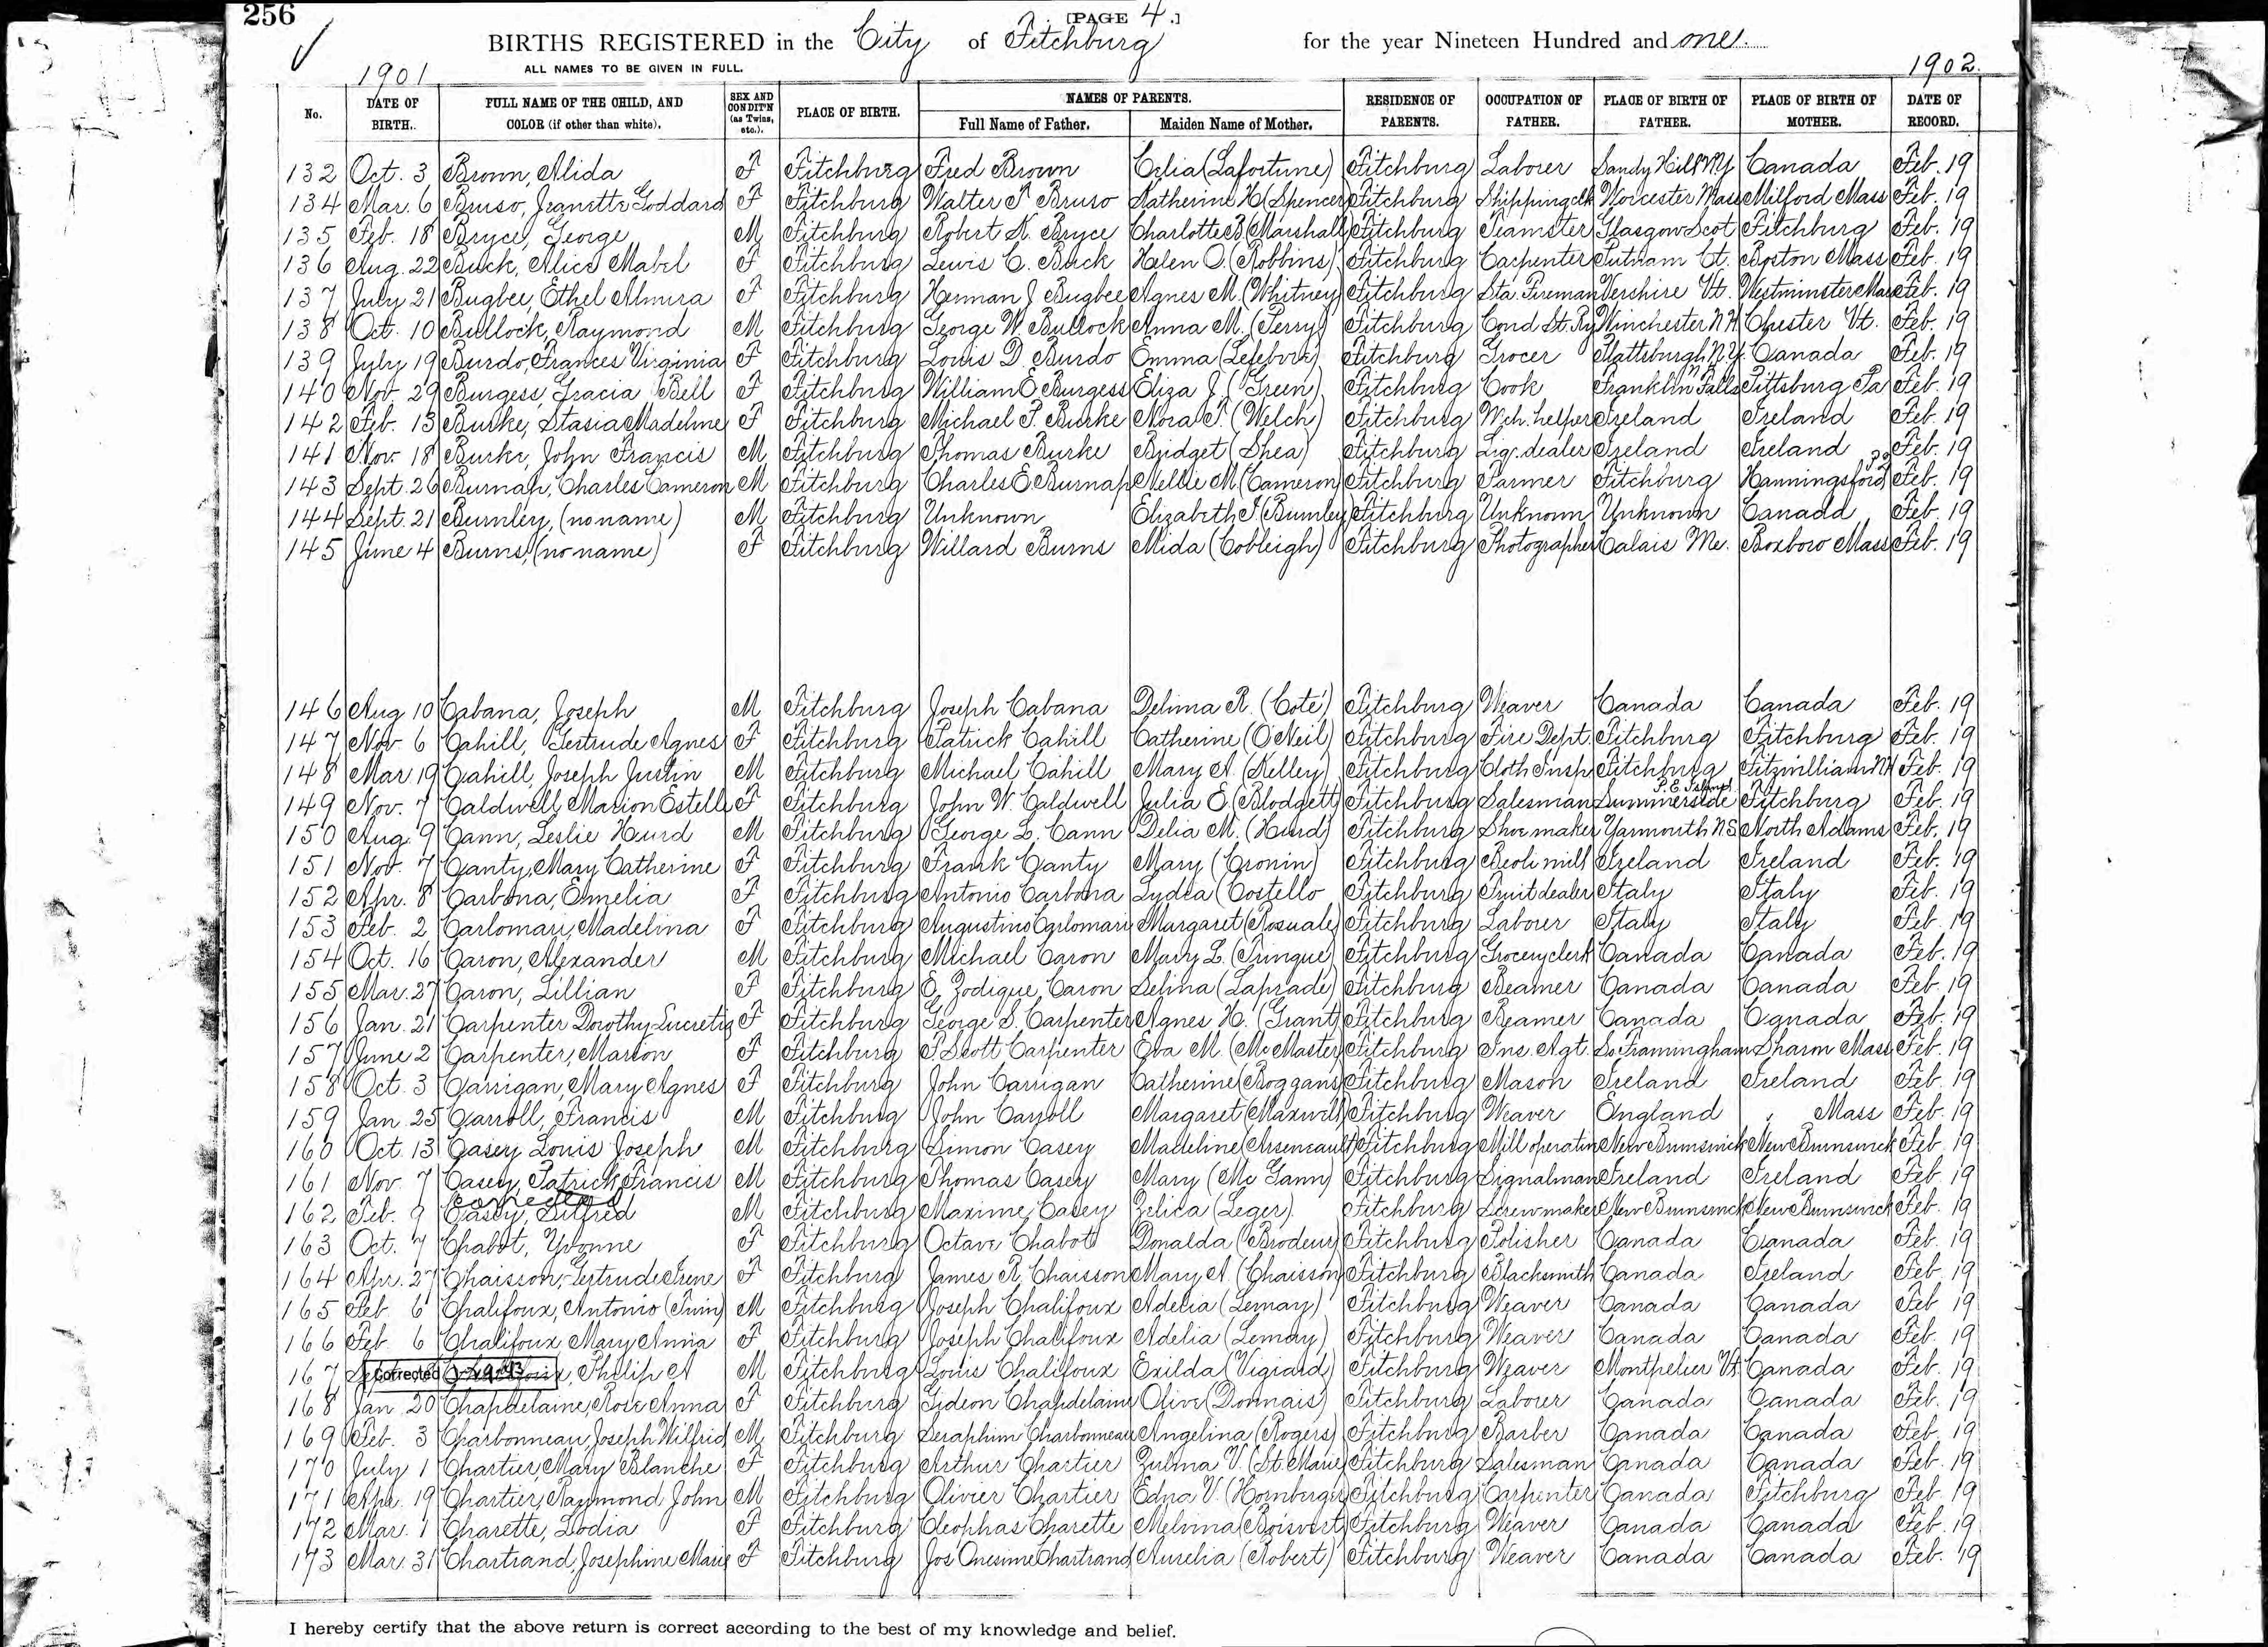 256
[PAGE 4.]
BIRTHS REGISTERED in the City of Fitchburg for the year Nineteen Hundred and one.
ALL NAMES TO BE GIVEN IN FULL.
1901
1902.
No. DATE OF BIRTH. FULL NAME OF THE CHILD, AND COLOR (if other than white). SEX AND CONDIT'N (as Twins, etc.). PLACE OF BIRTH. NAMES OF PARENTS. Full Name of Father. Maiden Name of Mother. RESIDENCE OF PARENTS. OCCUPATION OF FATHER. PLACE OF BIRTH OF FATHER. PLACE OF BIRTH OF MOTHER. DATE OF RECORD.
132 Oct. 3 Brown, Alida F Fitchburg Fred Brown Celia (Lafortune) Fitchburg Laborer Sandy Hill N.Y Canada Feb. 19
134 Mar. 6 Bruso, Jeanette Goddard F Fitchburg Walter F Bruso Katherine H (Spencer) Fitchburg Shipping clk Worcester Mass Milford Mass Feb. 19
135 Feb. 18 Bryce, George M Fitchburg Robert K. Bryce Charlotte B (Marshall) Fitchburg Teamster Glasgow Scot Fitchburg Feb. 19
136 Aug. 22 Buck, Alice Mabel F Fitchburg Lewis C. Buck Helen O. (Robbins) Fitchburg Carpenter Putnam Ct. Boston Mass Feb. 19
137 July 21 Bugbee, Ethel Almira F Fitchburg Herman J. Bugbee Agnes M. (Whitney) Fitchburg Sta. Fireman Vershire Vt. Westminster Mass Feb. 19
138 Oct. 10 Bullock, Raymond M Fitchburg George W. Bullock Anna M. (Perry) Fitchburg Cond St. Ry Winchester N H Chester Vt. Feb. 19
139 July 19 Burdo, Frances Virginia F Fitchburg Louis D. Burdo Emma (Lefebvre) Fitchburg Grocer Plattsburgh N.Y. Canada Feb. 19
140 Nov. 29 Burgess, Gracia Bell F Fitchburg William E Burgess Eliza J. (Green) Fitchburg Cook Franklin Falls Pittsburg Pa Feb. 19
142 Feb. 13 Burke, Stasia Madeline F Fitchburg Michael P. Burke Nora T. (Welch) Fitchburg Mch. helper Ireland Ireland Feb. 19
141 Nov. 18 Burke, John Francis M Fitchburg Thomas Burke Bridget (Shea) Fitchburg Liq. dealer Ireland Ireland Feb. 19
143 Sept. 26 Burnap, Charles Cameron M Fitchburg Charles E Burnap Nellie M. (Cameron) Fitchburg Farmer Fitchburg Hanningsford Feb. 19
144 Sept. 21 Burnley, (no name) M Fitchburg Unknown Elizabeth J. (Burnley) Fitchburg Unknown Unknown Canada Feb. 19
145 June 4 Burns, (no name) F Fitchburg Willard Burns Mida (Cobleigh) Fitchburg Photographer Calais Me. Boxboro Mass Feb. 19
146 Aug 10 Cabana, Joseph M Fitchburg Joseph Cabana Delima R. (Coté) Fitchburg Weaver Canada Canada Feb. 19
147 Nov. 6 Cahill, Gertrude Agnes F Fitchburg Patrick Cahill Catherine (O'Neil) Fitchburg Fire Dept. Fitchburg Fitchburg Feb. 19
148 Mar 19 Cahill, Joseph Justin M Fitchburg Michael Cahill Mary A. (Kelley) Fitchburg Cloth Insp Fitchburg Fitzwilliam NH Feb. 19
149 Nov. 7 Caldwell, Marion Estelle F Fitchburg John W. Caldwell Julia E. (Blodgett) Fitchburg Salesman Summerside P.E. Island Fitchburg Feb. 19
150 Aug. 9 Cann, Leslie Hurd M Fitchburg George L. Cann Delia M. (Hurd) Fitchburg Shoe maker Yarmouth N.S North Adams Feb. 19
151 Nov. 7 Canty, Mary Catherine F Fitchburg Frank Canty Mary (Cronin) Fitchburg Beoli mill Ireland Ireland Feb. 19
152 Apr. 8 Carbona, Emelia F Fitchburg Antonio Carbona Lydea (Costello Fitchburg Fruit dealer Italy Italy Feb. 19
153 Feb. 2 Carlomari, Madelina F Fitchburg Augustino Carlomari Margaret (Rosuale) Fitchburg Laborer Italy Italy Feb. 19
154 Oct. 16 Caron, Alexander M Fitchburg Michael Caron Mary L. (Pringue) Fitchburg Grocery clerk Canada Canada Feb. 19
155 Mar. 27 Caron, Lillian F Fitchburg E. Zodique Caron Selina (Laprade) Fitchburg Beamer Canada Canada Feb. 19
156 Jan. 21 Carpenter Dorothy Lucretia F Fitchburg George S. Carpenter Agnes H. (Grant) Fitchburg Beamer Canada Canada Feb. 19
157 June 2 Carpenter, Marion F Fitchburg P. Scott Carpenter Eva M. (McMaster) Fitchburg Ins. Agt. So Framingham Sharon Mass Feb. 19
158 Oct. 3 Carrigan, Mary Agnes F Fitchburg John Carrigan Catherine (Boggans) Fitchburg Mason Ireland Ireland Feb. 19
159 Jan 25 Carroll, Francis M Fitchburg John Carroll Margaret (Maxwell) Fitchburg Weaver England Mass Feb. 19
160 Oct. 13 Casey Louis Joseph M Fitchburg Simon Casey Madeline (Arseneault) Fitchburg Mill operative New Brunswick New Brunswick Feb. 19
161 Nov. 7 Casey, Patrick Francis M Fitchburg Thomas Casey Mary (Mc Gann) Fitchburg Signalman Ireland Ireland Feb. 19
corrected
162 Feb. 9 Casey, Dilfred M Fitchburg Maxime Casey Zelica (Leger) Fitchburg Screwmaker New Brunswick New Brunswick Feb. 19
163 Oct. 7 Chabot, Yvonne F Fitchburg Octave Chabot Donalda (Brodeur) Fitchburg Polisher Canada Canada Feb. 19
164 Apr. 27 Chaisson, Gertrude Irene F Fitchburg James R. Chaisson Mary A. (Chaisson) Fitchburg Blacksmith Canada Ireland Feb. 19
165 Feb. 6 Chalifoux, Antonio (Twin) M Fitchburg Joseph Chalifoux Adelia (Lemay) Fitchburg Weaver Canada Canada Feb. 19
166 Feb. 6 Chalifoux Mary Anna F Fitchburg Joseph Chalifoux Adelia (Lemay) Fitchburg Weaver Canada Canada Feb. 19
167 Corrected Philip A M Fitchburg Louis Chalifoux Exilda (Vigiard) Fitchburg Weaver Montpelier Vt. Canada Feb. 19
168 Jan 20 Chapdelaine, Rose Anna F Fitchburg Gideon Chapdelaine Olive (Donnais) Fitchburg Laborer Canada Canada Feb. 19
169 Feb. 3 Charbonneau, Joseph Wilfrid M Fitchburg Seraphim Charbonneau Angelina (Rogers) Fitchburg Barber Canada Canada Feb. 19
170 July 1 Chartier, Mary Blanche F Fitchburg Arthur Chartier Zulma V. (St. Marie) Fitchburg Salesman Canada Canada Feb. 19
171 Apr. 19 Chartier, Raymond John M Fitchburg Olivier Chartier Edna V. (Homberger) Fitchburg Carpenter Canada Fitchburg Feb. 19
172 Mar. 1 Charette, Lodia F Fitchburg Cleophas Charette Melvina (Boisvert) Fitchburg Weaver Canada Canada Feb. 19
173 Mar. 31 Chartrand, Josephine Marie F Fitchburg Jos Onesime Chartrand Aurelia (Robert) Fitchburg Weaver Canada Canada Feb. 19
I hereby certify that the above return is correct according to the best of my knowledge and belief.